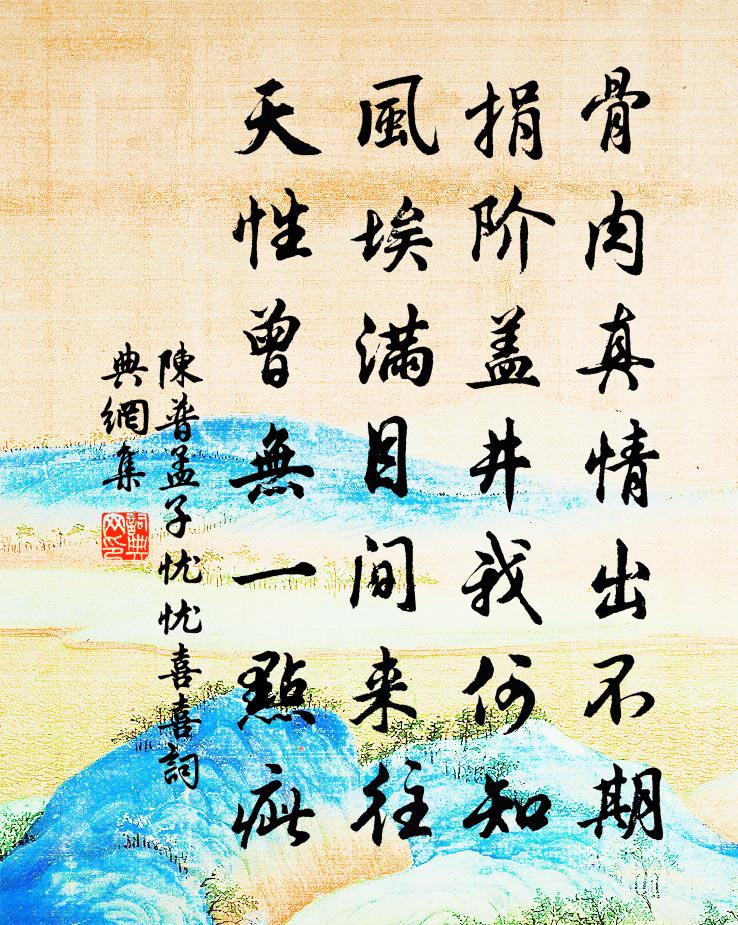 骨肉真情出不期
捐阶盖井我何知
風埃满目间来往
天性曾無一點疵
陳普孟子忧忧喜喜詞
典網集
詞典網印